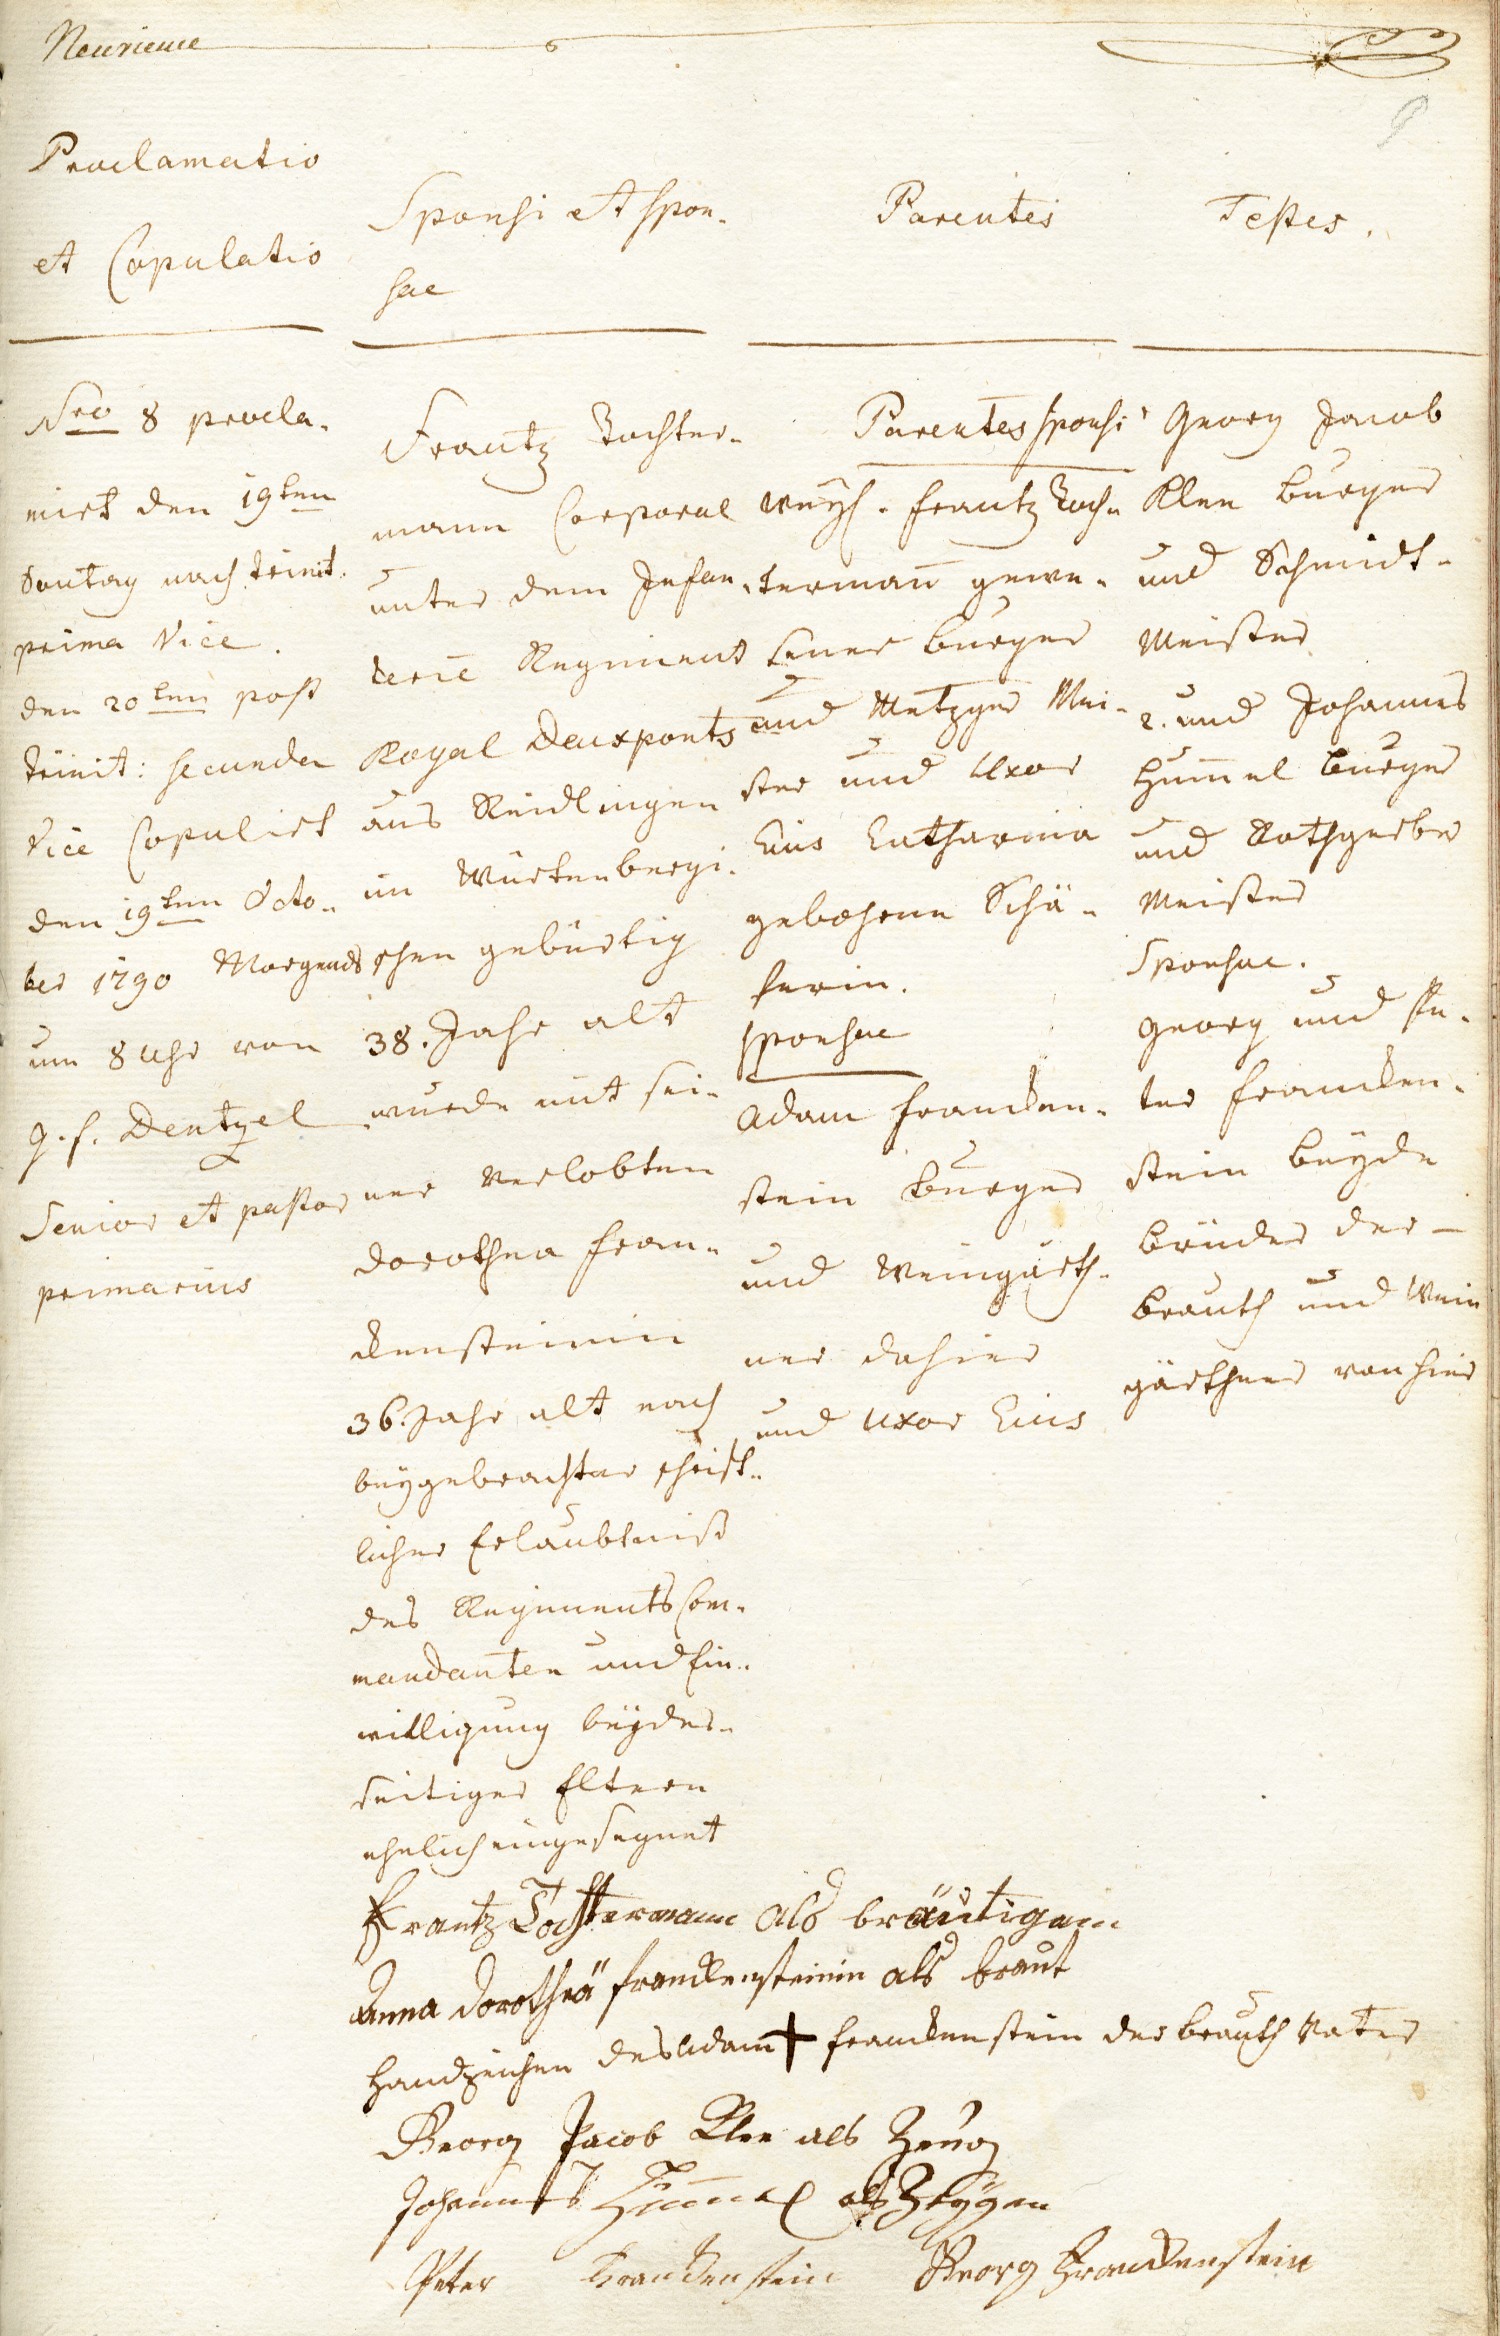 Neuvieme
Proclamatio
et Copulatio
Sponsi et Spon-
sae
Parentes
Testes.
Nro 8 procla-
mirt den 19ten
Sontag nach trinit.
prima Vice.
den 20ten post
trinit: secunda
Vice Copulirt
den 19ten Octo-
ber 1790 Morgends
um 8 Uhr von
J. F. Dentzel
Senior et pastor
primarius
Frantz Tochter-
mann Corporal
unter dem Infan-
terie Regiment
Royal Deuxponts
aus Reidlingen
im Würtenbergi-
schen gebürtig
38. Jahr alt
wurde mit sei-
ner Verlobten
Dorothea Fran-
ckensteinin
36. Jahr alt nach
beygebrachter schrift-
licher Erlaubtniß
des Regiments Com-
mandanten und Ein-
willigung beyder-
seitiger Eltern
ehelich eingesegnet
Parentes sponsi
weyl. Frantz Toch-
termañ gewe-
sener Burger
und Metzger Mei-
ster und Uxor
Eius Catharina
gebohrne Schä-
ferin.
sponsae
Adam Francken-
stein Burger
und Weingärth-
ner dahier
und Uxor Eius
Georg Jacob
Klee Burger
und Schmidt-
Meister
2. und Johannes
Hum̄el Burger
und Rothgerber
Meister
Sponsae.
Georg und Pe-
ter Francken-
stein beyde
Brüder der
Brauth und Wein
gärthner von hier
Frantz Tochtermann als bräutigam
Anna Dorotheä Franckensteinin als braut
Handzeichen des Adam + Franckenstein der Brauth Vater
Georg Jacob Klee als Zeug
Johannes Hum̄el als Zeygen
Peter Franckenstein Georg Franckenstein